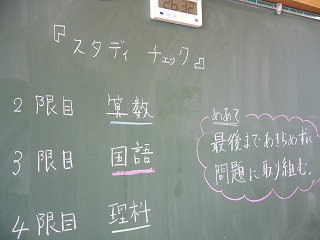 『スタディ チェック』
2 限目 算数
3 限目 国語
4 限目 理科
めあて
最後まであきらめずに
問題に取り組む。